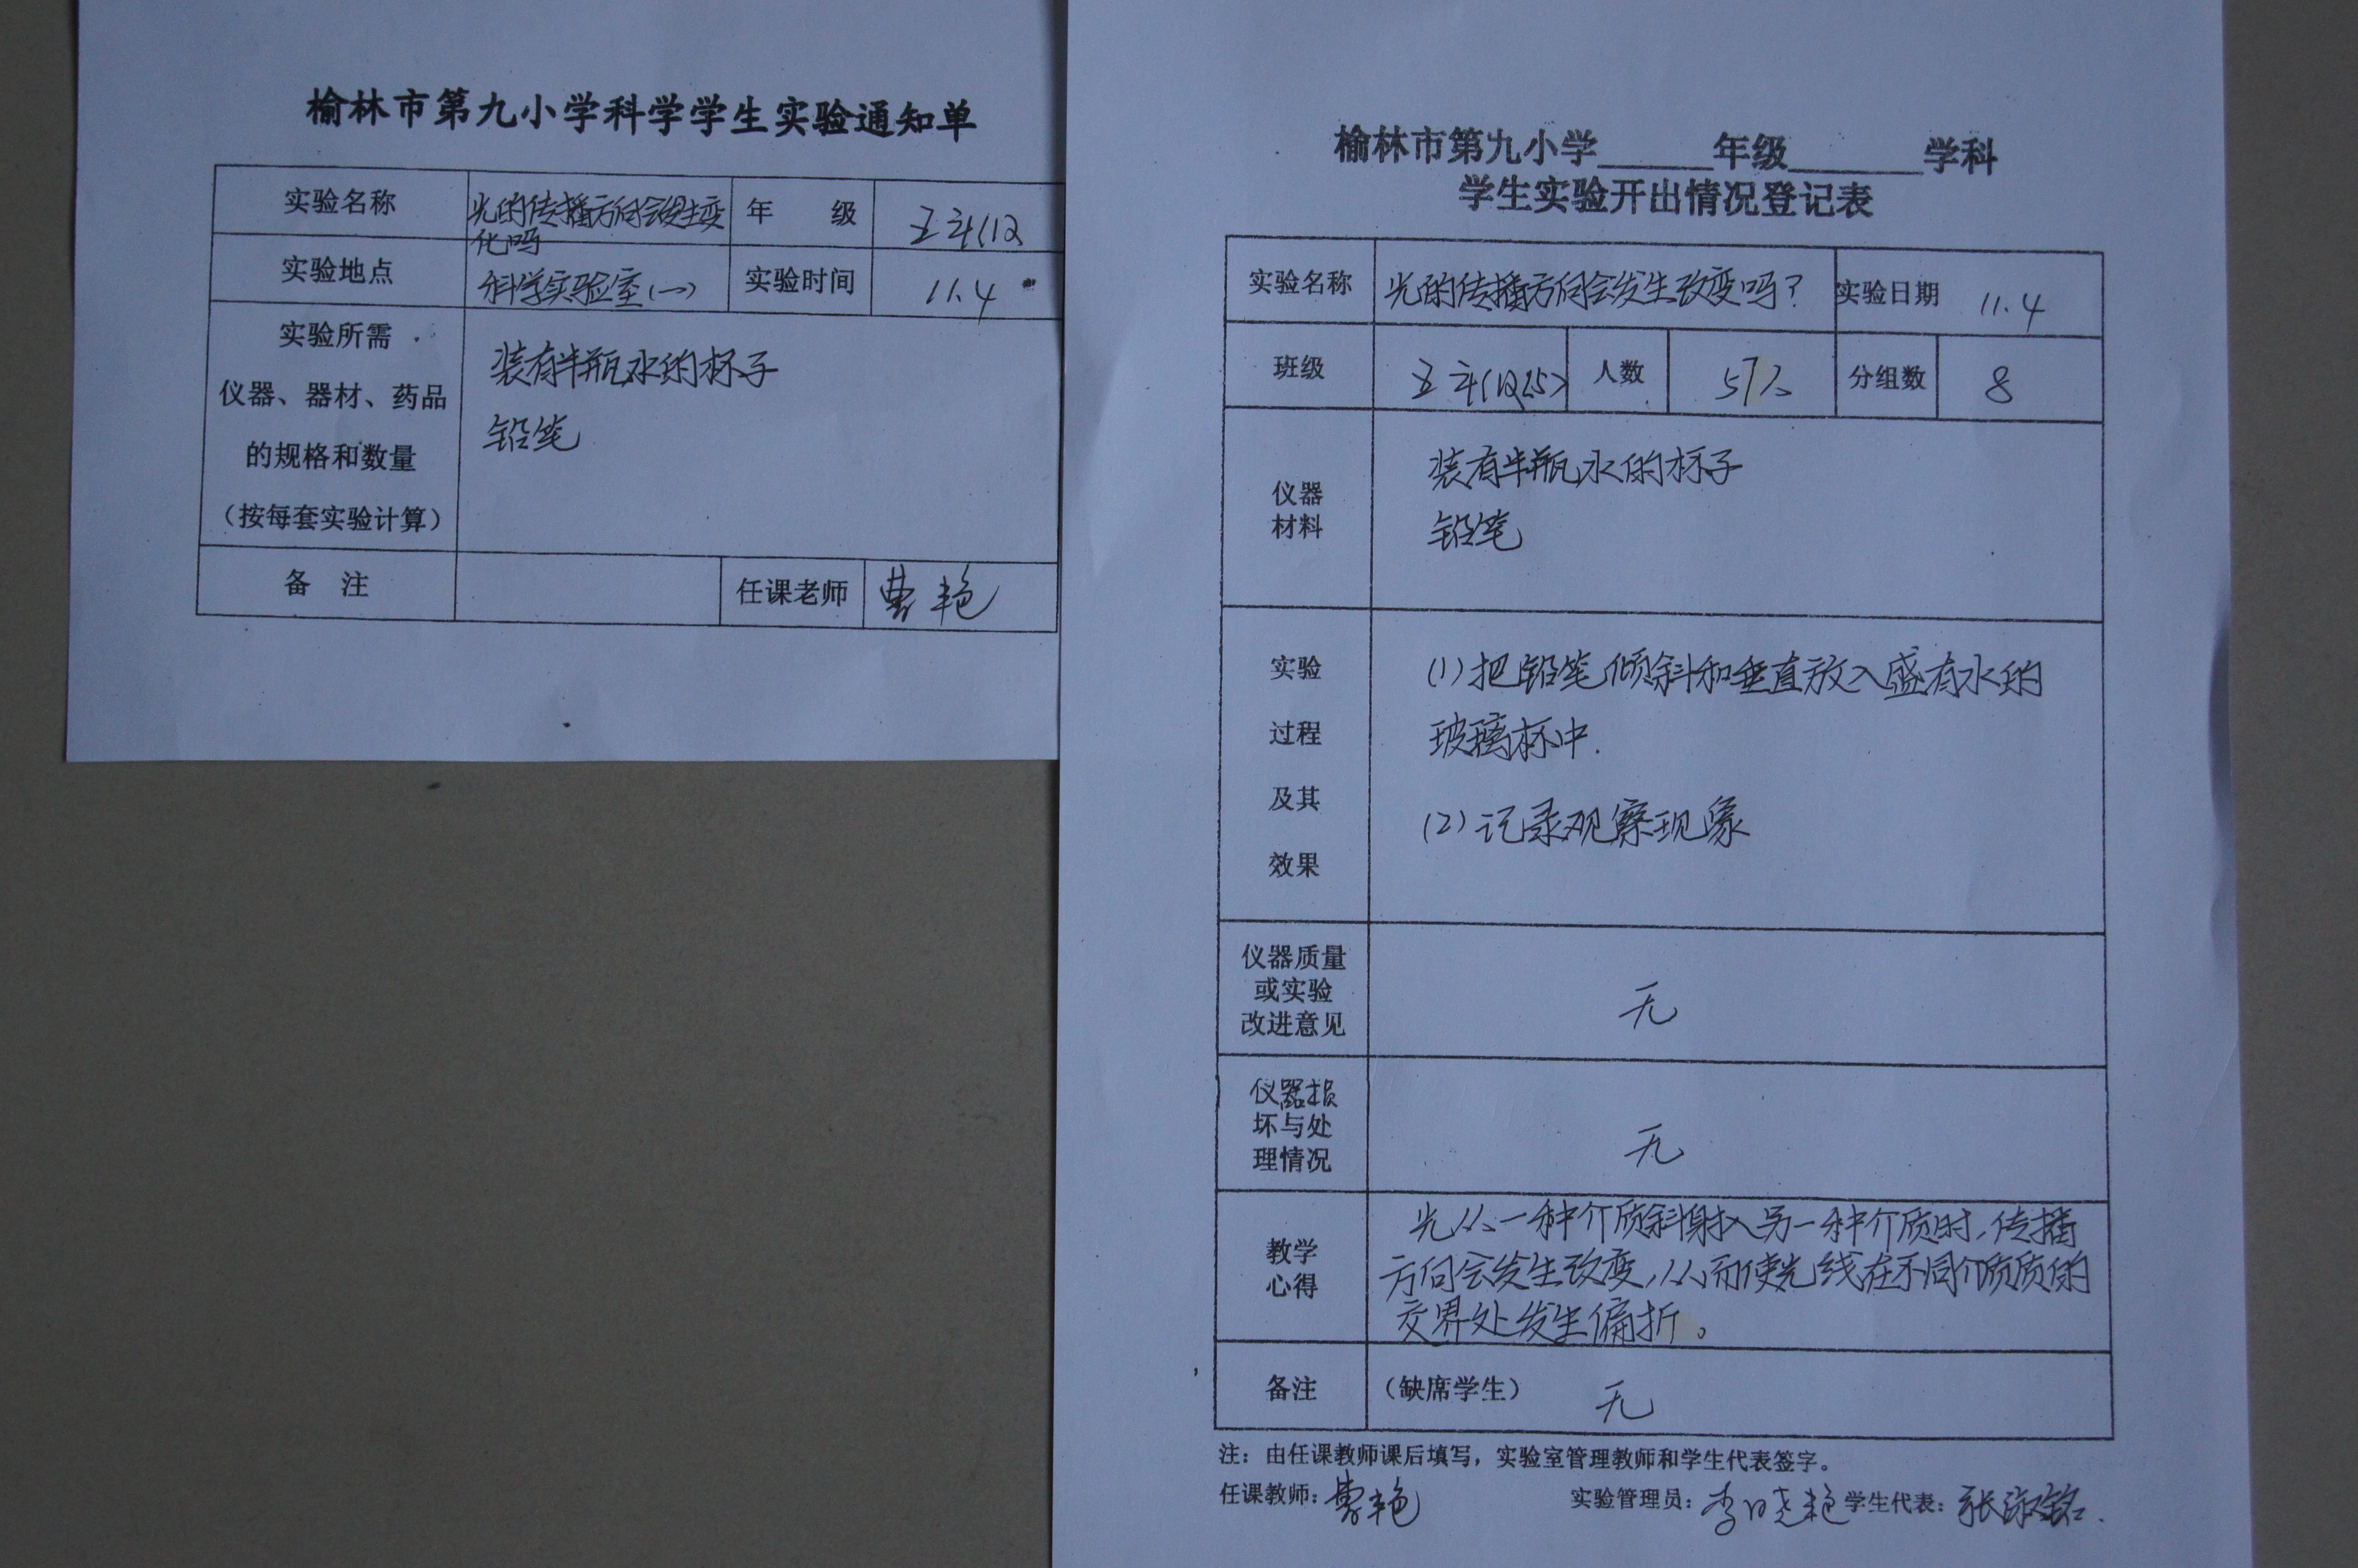 榆林市第九小学科学学生实验通知单
实验名称 光的传播方向会发生变化吗 年 级
实验地点 科学实验室(一) 实验时间 11.4
实验所需
仪器、器材、药品
的规格和数量
(按每套实验计算)
装有半瓶水的杯子
铅笔
备 注 任课老师 曹艳
榆林市第九小学______年级_______学科
学生实验开出情况登记表
实验名称 光的传播方向会发生改变吗? 实验日期 11.4
班级 人数 分组数 8
仪器
材料
装有半瓶水的杯子
铅笔
实验
过程
及其
效果
(1)把铅笔倾斜和垂直放入盛有水的
玻璃杯中.
(2)记录观察现象
仪器质量
或实验
改进意见
无
仪器损
坏与处
理情况
无
教学
心得
光从一种介质斜射入另一种介质时,传播
方向会发生改变,从而使光线在不同介质质的
交界处发生偏折。
备注 (缺席学生) 无
注:由任课教师课后填写,实验室管理教师和学生代表签字。
任课教师:曹艳 实验管理员:李晓艳 学生代表:张淑铭.